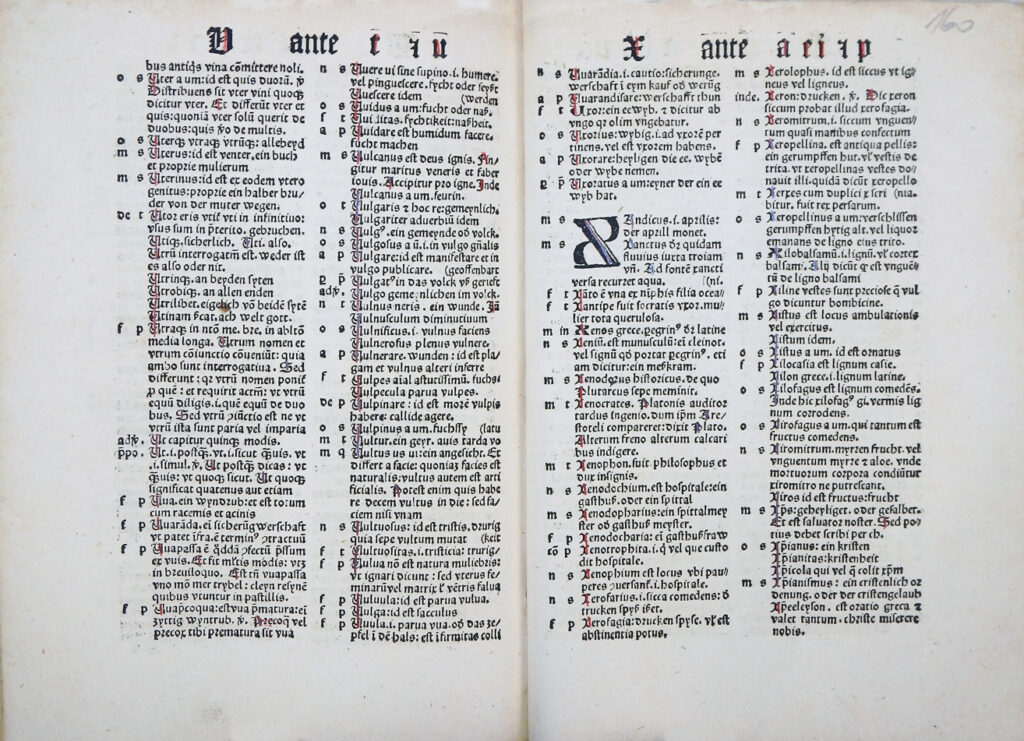 V ante t ꝛ u
bus antiqͥs vina cõmittere noli.
o s Uter a um: id est quis duorũ. ꝟ
Distribuens sit vter vini quoqꝫ
dicitur vter. Et differũt vter et
quis: quoniã vter solũ querit de
duobus: quis ꝟo de multis.
o s Uterqꝫ vtraqꝫ vtrũqꝫ: alleheyd
m s Uterus: id est venter. ein buch
et proprie mulierum
m s Uterinus: id est ex eodem vtero
genitus: proprie ein halber bru/
der von der muter wegen.
de t Utor eris vti vti in infinitiuo:
vsus sum in ꝑterito. gebruchen.
Utiqꝫ. sicherlich. Uti. also.
Utrũ interrogatim est. weder ist
es also oder nit.
Utrinqꝫ. an beyden syten
Utrobiqꝫ. an allen enden
Utrilibet. eigẽlich võ beidẽ sytẽ
Utinam ꝓcar. ach welt gott.
f p Utraqꝫ in ntõ me. bre. in abltõ
media longa. Utrum nomen et
vtrum cõiunctio coueniũt: quia
ambo sunt interrogatiua. Sed
differunt: qꝛ vtrũ nomen ponit̃
ꝓ quẽ: et requirit actm̃: vt vtrũ
equũ diligis. i. quẽ equũ de duo
bus. Sed vtrũ ꝯiũctio est ne vt
vtrũ ista sunt paria vel imparia
adꝟ. Ut capitur quinqꝫ modis.
ꝓpo. Ut. i. postqꝫ. vt. i. sicut qͥuis. vt
. i. simul. ꝟ. Ut postqꝫ dicas: vt
qͥuis: vt quoqꝫ sicut. Ut quoqꝫ
significat quatenus aut etiam
f p Uua. ein wyndrub: et est to: um
cum racemis et acinis
f p Uuarãda. ei sicherũg werschaft
vt patet ĩfra. e termin⁹ ꝯtractuũ
f p Uuapassa ẽ qͥdda ꝯfectũ ꝑssum
ex vuis. Et fit mltis modis: vtꝫ
in breuiloquo. Est tñ vuapassa
vno mõ mer trybel: cleyn resynẽ
quibus vtuntur in pastillis.
f p Uuaꝑcoqua: est vua ꝑmatura: ei
zyttig wyntrub. ꝟ. Precoq̃ vel
precox tibi prematura sit vua
n s Uuere ui sine supino. i. humere.
vel pinguescere. fycht oder feyßt
Uuescere idem (werden
o s Uuidus a um: fucht oder naß.
f t Uui ditas. fychtikeit: naßheit.
a p Uuidare est humidum facere.
fucht machen
m s Uulcanus est deus ignis. ſin/
gitur maritus veneris et faber
Iouis. Accipitur pro igne. Inde
Uulcanus a um. feurin.
o t Uulgaris ⁊ hoc re: gemeynlich.
Uulgariter aduerbiũ idem
n s Uulg⁹. ein gemeynde od̕ volck.
o s Uulgosus a ũ. i. in vulgo gñalis
a p Uulgare: id est manifestare et in
vulgo publicare. (geoffenbart
ꝛ p Uulgat⁹ in das volck vß gerieft
adꝟ. Uulgo geme,nlichen im volck.
n t Uulnus neris . ein wunde. Iñ
Uulnusculum diminutiuum
o s Uulnificus. i. vulnus faciens
Uulnerosus plenus vulnere.
a p Uulnerare. wunden: id est pla/
gam et vulnus alteri inferre
f t Uulpes aĩal astutissimũ. fuchs.
Uulpecula parua vulpes.
de p Uulpinare: id est more vulpis
habere: callide agere.
o s Uulpinus a um. fuchssy (latu
m t Uultur. ein geyr. auis tarda vo
m q Uultus us ui: ein angesicht. Et
differt a facie: quoniaꝫ facies est
naturalis: vultus autem est arti
ficialis. Potest enim quis habe
re decem vultus in die: sed fa/
ciem nisi vnam
n s Uultuosus: id est tristis. drurig
quia sepe vultum mutat (keit
f t Uultuositas. i. tristicia: trurig/
f p Uulua nõ est natura muliebris:
vt ignari dicunt: sed vterus fe/
minarũ vel matrix l' vẽtris falua
f p Uuluula: id est parua vulua.
f p Uulga: id est sacculus
f p Uuula. i. parua vua. od̕ das ze/
pfel ĩ dẽ hals: est ĩfirmitas colli
160
X ante a e i ꝛ p
n s Uuarãdia. i. cautio: sicherunge.
werschafft ĩ eym kauf od̕ werũg
a p Uuarandisare: werschafft thun
f t Uxor: ein ee wyb. ⁊ dicitur ab
vngo qꝛ olim vngebatur.
o s Uxorius: wybig. i. ad vxorẽ per
tinens. vel est vxorem habens.
a p Uxorare: heyligen die ee. wybẽ
oder wybe nemen.
ꝛ p Uxoratus a um: eyner der ein ee
wyb hat.
m s Xandicus. i. aprilis:
der aprill monet.
m s Xanctus dꝛ quidam
fluuius iuxta troiam
vñ. Ad fontẽ xancti
versa recurret aqua. (ni.
f t Xãto ẽ vna ex nịphis filia ocea/
f t Xantipe fuit socratis vxor. mu/
lier tota querulosa.
m in Xenos grece. ꝑegrin⁹ dꝛ latine
n s Xeniũ. est munusculũ: ei cleinot.
vel signũ qd̕ portat ꝑegrin⁹. eti
am dicitur: ein meßkram.
m s Xenodoꝛus historicus. de quo
Plutarcus sepe meminit.
m t Xenocrates. Platonis auditor
tardus ingenio. dum ip̃m Are/
stoteli compareret: dixit Plato.
Alterum freno alterum calcari
bus indigere.
m t Xenophon. fuit philosophus et
dux insignis.
n s Xenodochium. est hospitale: ein
gasthuß. oder ein spittal
m s Xenodopharius: ein spittalmey
ster od̕ gasthuß meyster.
f p Xenodocharia: eĩ gasthußfraw
cõ p Xenotrophita. i. q̃ vel que custo
dit hospitale.
n s Xenophium est locus vbi pau/
peres ꝯuersant̃. i. hospitale.
n s Xerofarius. i. sicca comedens: d̕
trucken spyß ißet.
f p Xerofagia: drucken spyse. vl̕ est
abstinentia potus.
m s Xerolophus. id est siccus vt ig/
neus vel ligneus.
inde. Xeron: drucken. ꝟ. Dic xeron
siccum probat illud xerofagia.
n s Xeromitrum. i. siccum vnguen/
tum quasi manibus confectum
f p Xeropellina. est antiqua pellis:
ein gerumpffen hut. vl̕ vestis de
trita. vt xeropellinas vestes do/
nauit illi. quidã dicũt xeropello
m t Xerxes cum duplici x scri (nia/
bitur. fuit rex persarum.
o s Xeropellinus a um: verschlissen
gerumpffen hytig alt. vel liquor
emanans de ligno eius trito.
n s Xilobalsamũ. i. lignũ. vl̕ cortex
balsami. Alij dicũt qꝫ est vnguẽ/
tũ de ligno balsami
f p Xiline vestes sunt preciose q̃ vul
go dicuntur bombicine.
m s Xistus est locus ambulationis
vel exercitus.
Xistum idem.
o s Xistus a um. id est ornatus
f p Xilocasia est lignum casie.
Xilon grece. i. lignum latine.
o s Xilofagus est lignum comedẽs.
Inde hic xilofag⁹ gi. vermis lig
num corrodens.
o s Xirofagus a um. qui tantum est
fructus comedens.
n s Xiromitrum. myrren frucht. vel
vnguentum myrre ⁊ aloe. vnde
mortuorum corpora condiũtur
xiromitro ne putrescant.
Xiros id est fructus: frucht
m s Xp̃s: geheyliget. oder gesalber.
Et est saluator noster. Sed po/
tius debet scribi per ch.
o s Xp̃ianus: ein kristen
Xp̃ianitas: kristenheit
Xp̃icola qui vel q̃ colit xp̃m
m s Xp̃ianismus: ein cristenlich or
denung. oder der cristenglaub
Xpeelcyson. est oratio greca ⁊
valet tantum. christe miserere
nobis.